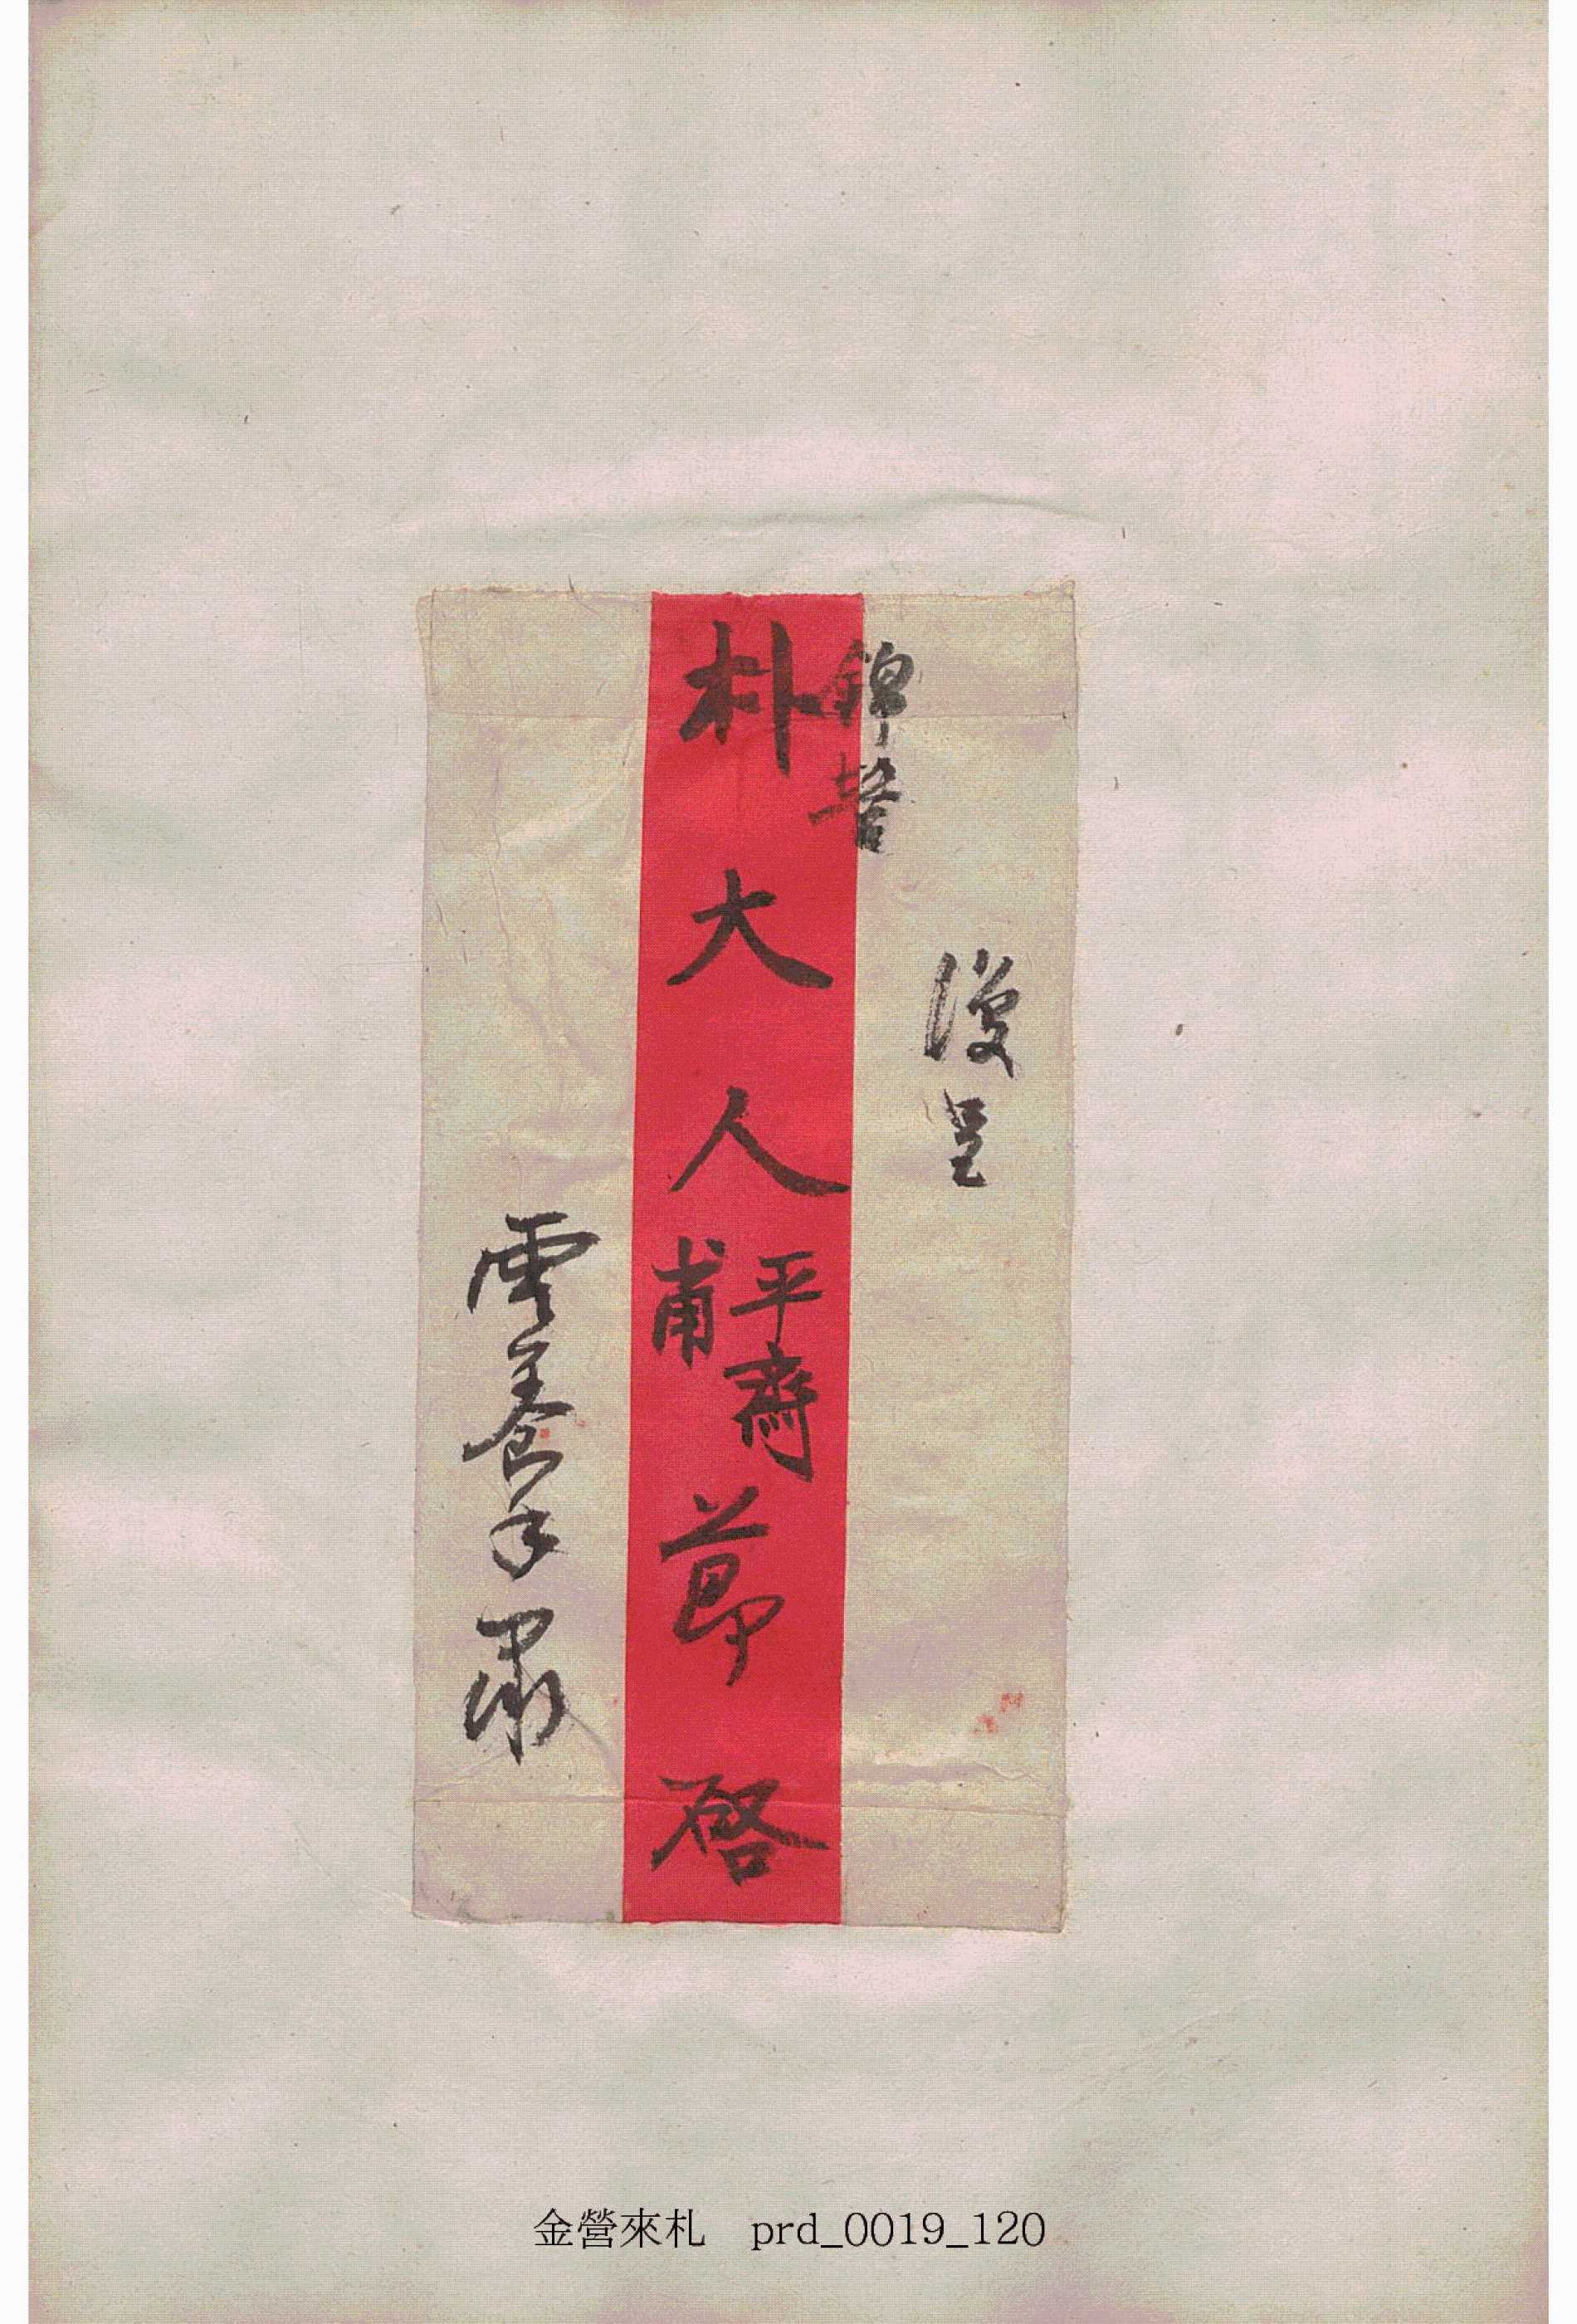 復呈
錦營
朴大人
平齋
甫
節啓
雲養手肅
金營來札 prd_0019_120